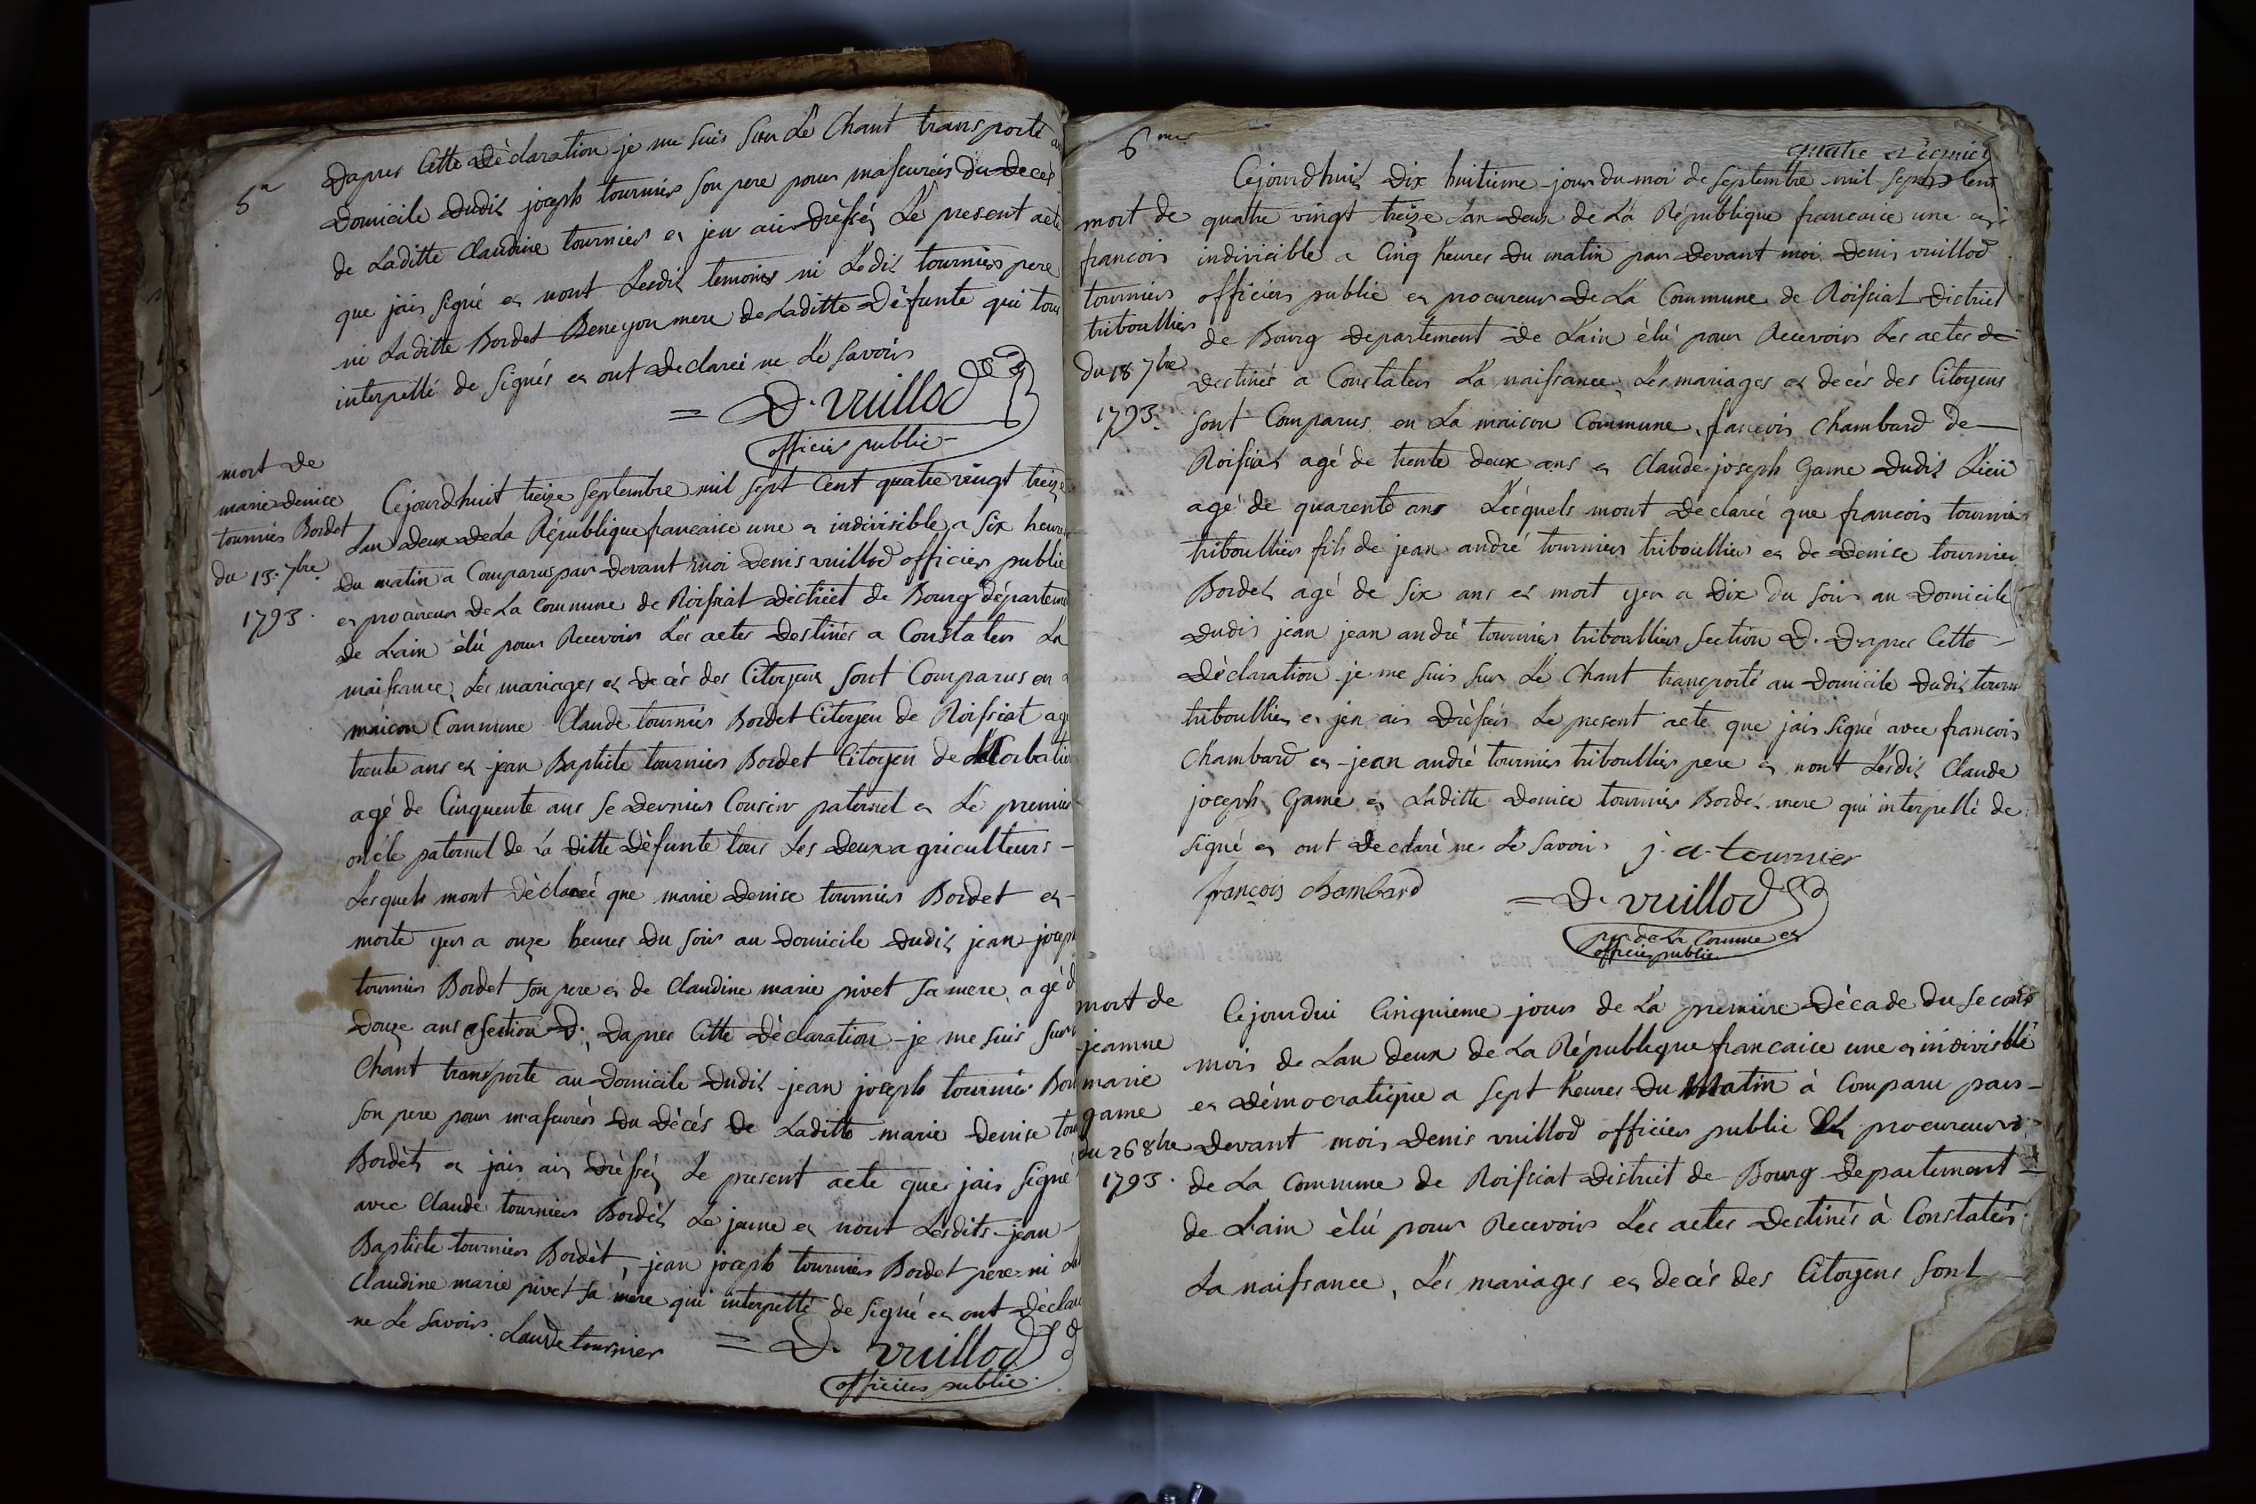 5e
Dapres Cette Déclaration je me suis sur Le Chant transporté au
Domicile Dudit joseph tournier son pere pour massurer du Deces
de Laditte Claudine tournier et jen ai Dréssé Le present acte
que jais signé et nont Lesdit temoins ni Ledit tournier pere
ni Laditte Bordet Beneyon mere de Laditte Défunte qui tous
interpellé de signés et ont Declareé ne Le Savoir
= D. vuillod
officier public
mort de
marie denice
tournier Bordet
du 13. 7bre
1793.
Cejourdhuit treize septembre mil sept Cent quatre vingt treize
Lan Deux de La République francaice une et indivisible a six heures
Du matin a Comparus par Devant moi Denis vuillod officier public
et procureur De La Commune de Roissiat District de Bourg départeme
de Lain élù pour Recevoir Les actes Destinés a Constater La
naissance, Les mariages et Decés des Citoyens sont Comparus en
maison Commune Claude tournier Bordet Citoyen de Roissiat agé
trente ans et jean Baptiste tournier Bordet Citoyen de
agé de Cinquente ans le Dernier Cousin paternel et Le premier
oncle paternel de La Ditte Défunte tous Les Deux agriculteurs -
Lesquels mont Déclareé que marie Denise tournier Bordet et -
morte yer a onze heures Du soir au Domicile Dudit jean joseph
tournier Bordet son pere et de Claudine marie pivet sa mere, agé d
Douze ans section D. Dapres Cette Déclaration je me suis sur
Chant transporté au Domicile Dudit jean joseph tournier Bor
son pere pour massurér Du Décés De Laditte marie Denise tou
Bordèt et jais ai Dréssé Le present acte que jais signé
avec Claude tournier Bordèt Le jeune et nont Lesdits jean
Baptiste tournier Bordèt, jean joseph tournier Bordet pere ni
Claudine marie pivet sa mere qui interpellé de signé et ont Déclaré
ne Le savoir. Claude tournier = D. vuillod
officier public.
6me
quatre et dernier
mort de
francois
tournier
triboullier
du 18 7bre
1793.
Cejourdhuit Dix huitieme jour du moi de septembre mil sept Cent
quatre vingt treize Lan Deux de La République francaice une et
indivicible a Cinq heures Du matin par Devant moi Denis vuillod
officier public et procureur De La Commune de Roissiat District
de Bourg Departement De Lain élù pour Recevoir Les actes de
Destinés a Constater La naissance, Les mariages et decès des Citoyens
sont Comparus en La maison Commune, francois Chambard de
Roissiat agé de trente Deux ans et Claude joseph Game Dudit Lieü
agé de quarente ans Lésquels mont Déclareé que francois tournier
triboullier fils de jean andré tournier triboullier et de Denice tournier
Bordet agé de six ans et mort yer a Dix Du soir au Domicile
Dudit jean jean andré tournier triboullier section D. Dapres Cette
Déclaration je me suis sur Le Chant transporté au Domicile Dudit tourn
triboullier et jen ai Dréssé Le present acte que jais signé avec francois
Chambard et jean andré tournier triboullier pere et nont Lesdit Claude
joseph Game et Laditte Denice tournier Bordet mere qui interpellé de
signé et ont Declaré ne Le savoir j. a. tournier
françois chambard = D. vuillod
pr. de La Comune et
officier public
mort de
jeanne
marie
game
du 26 8bre
1793.
Cejourdui Cinquieme jour de La premiere Décade Du second
mois de Lan deux de La République francaice une et indivisiblé
et Démocratique a sept heures Du Matin à Comparu par -
Devant moi Denis vuillod officier public Et procureur
de La Commune de Roissiat District de Bourg Departement
de Lain élù pour Recevoir Les actes Destinés à Constatér
La naissance, Les mariages et decès des Citoyens sont